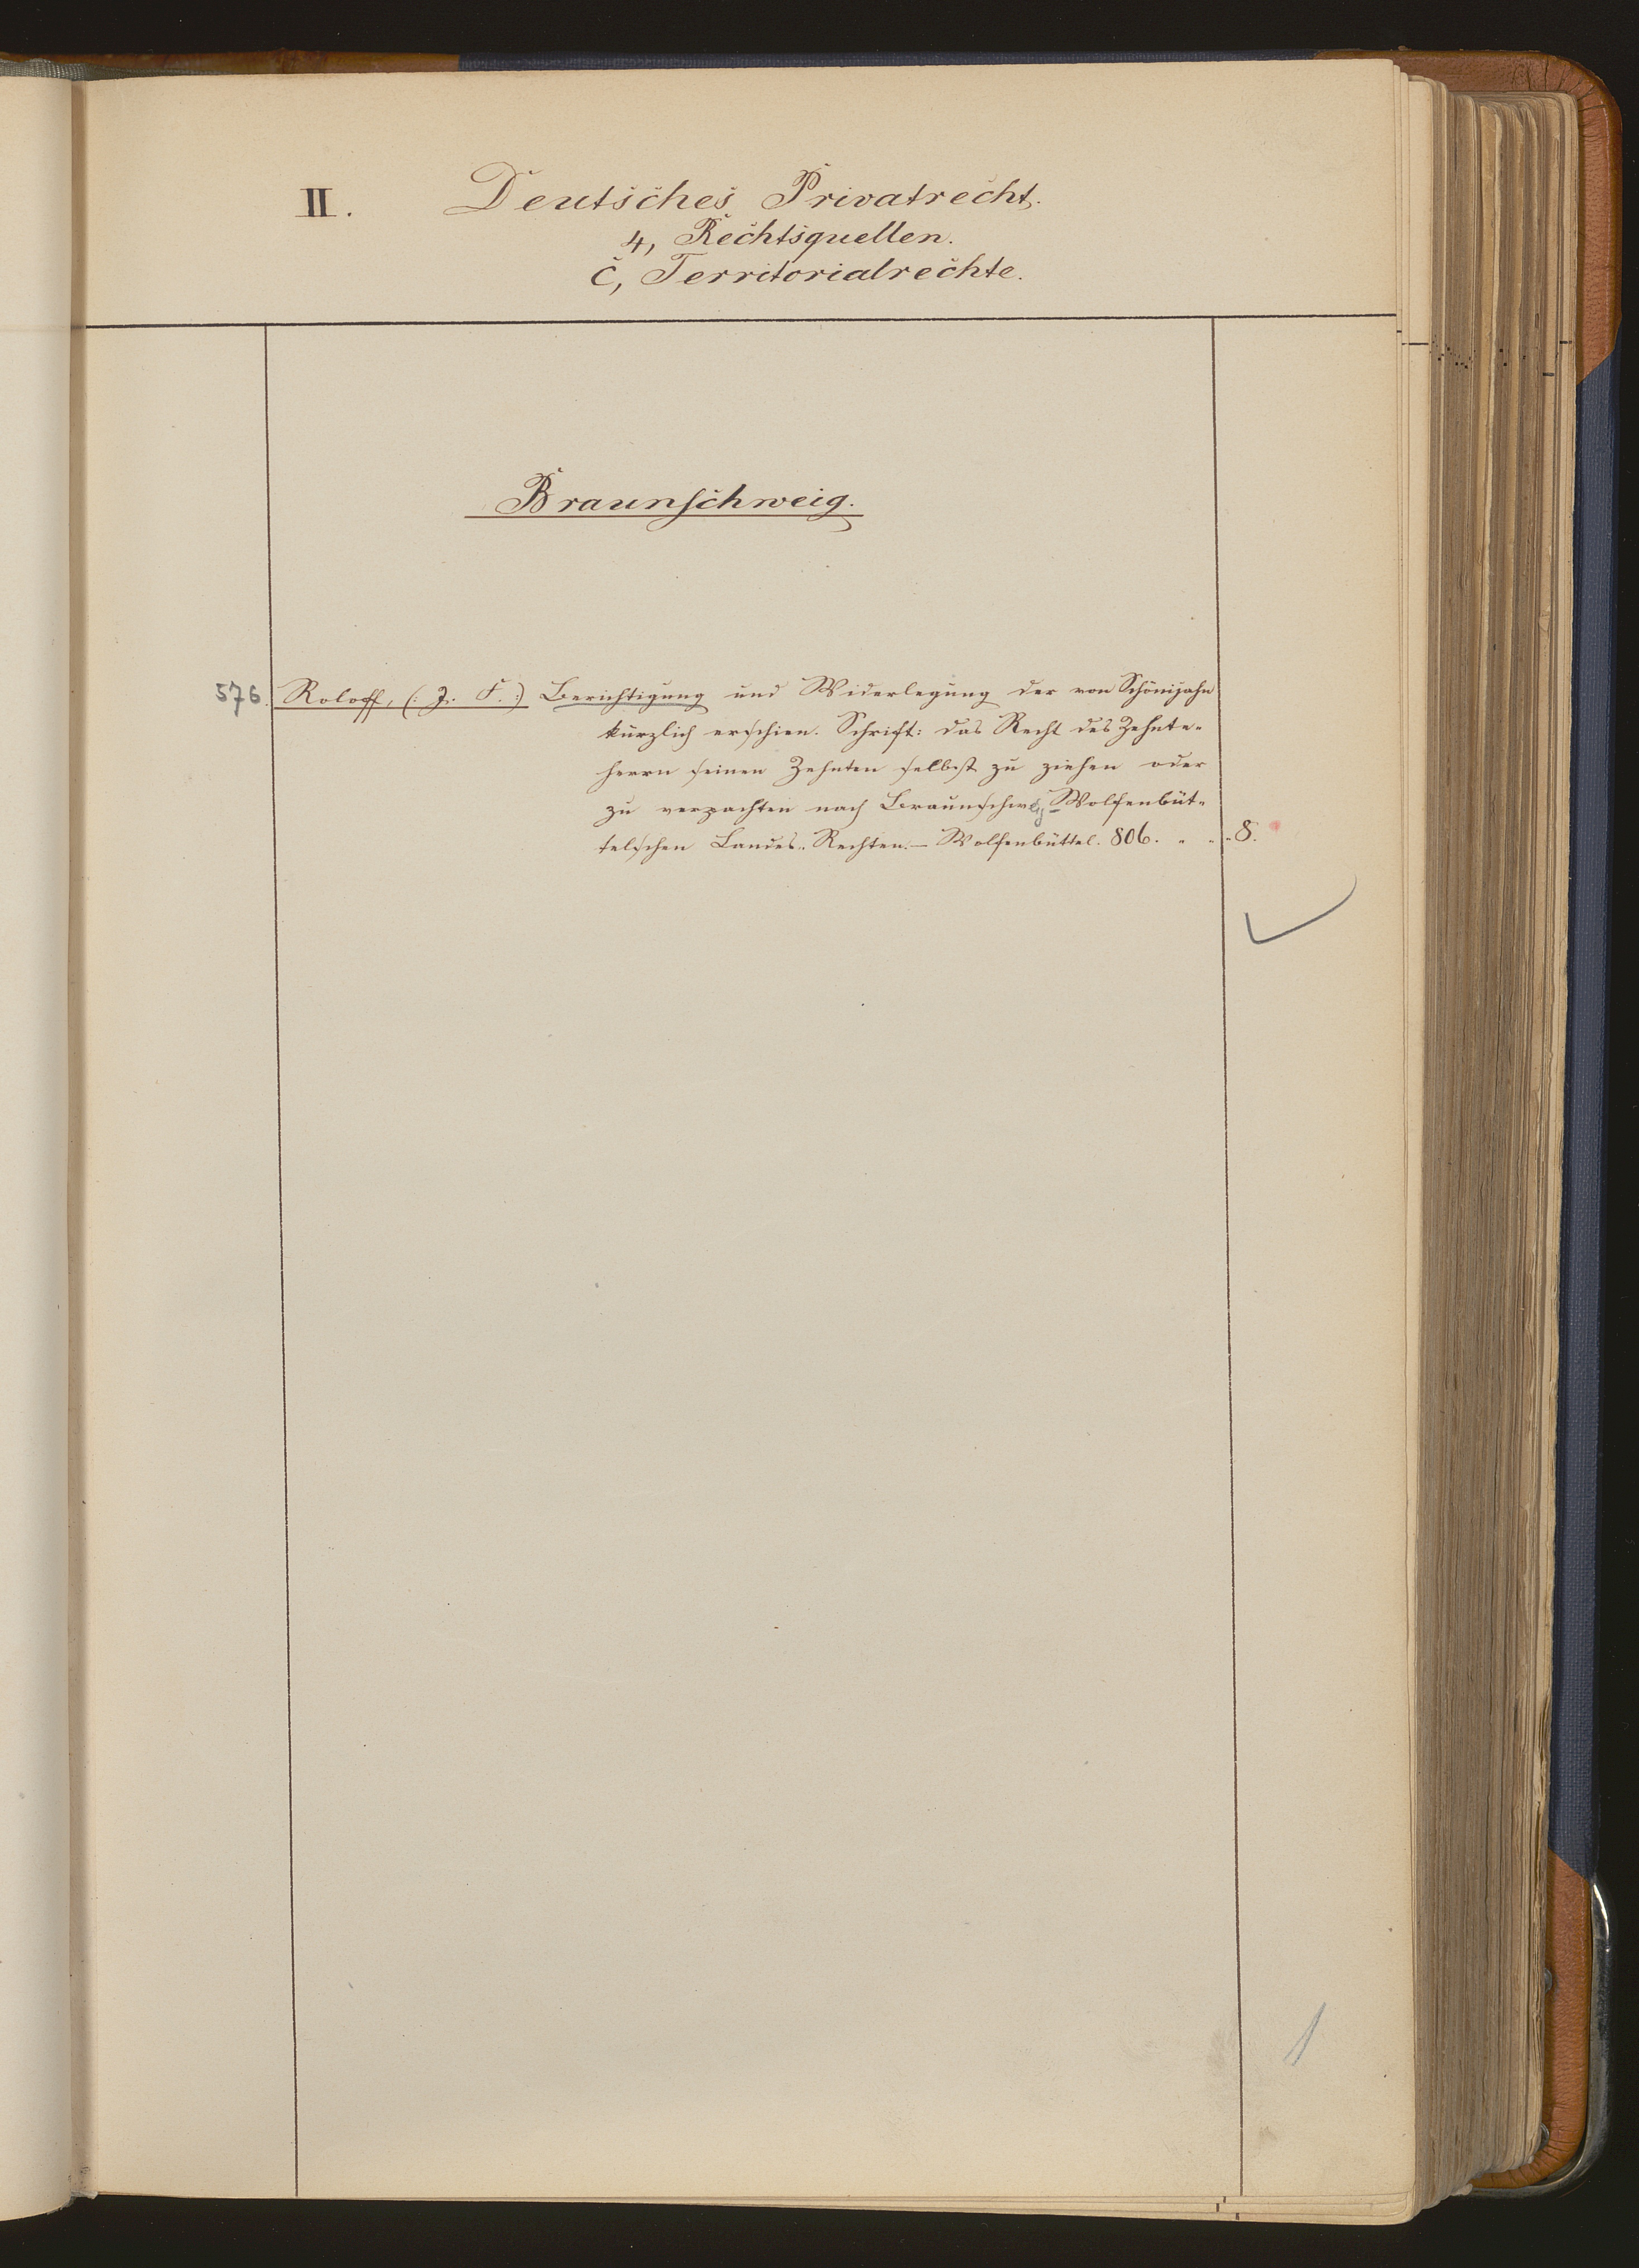 II. Deutsches Privatrecht.
4, Rechtsquellen.
c, Territorialrechte.
Braunschweig.
576. Roloff, (: J. F. :) Berichtigung und Widerlegung der von Schönijahn
kürzlich erschien. Schrift: das Recht des Zehnte-
herrn seinen Zehnten selbst zu ziehen oder
zu verpachten nach Braunschweig-Wolfenbüt-
telschen Landes-Rechten. – Wolfenbüttel. 806. 8.
1